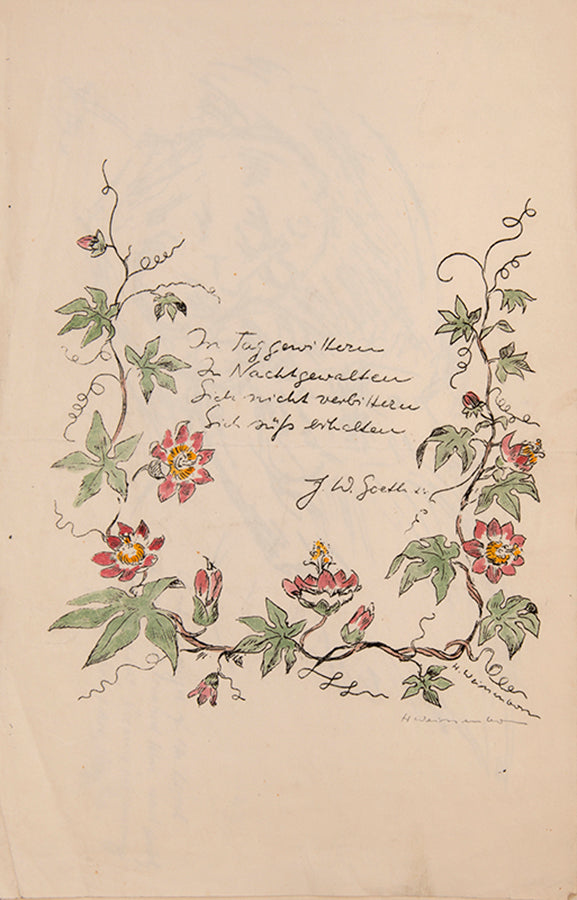 In Taggewittern
In Nachtgewalten
Sich nicht verbittern
Sich süß erhalten
J. W. Goethe
H. Weissenborn
H Weissenborn